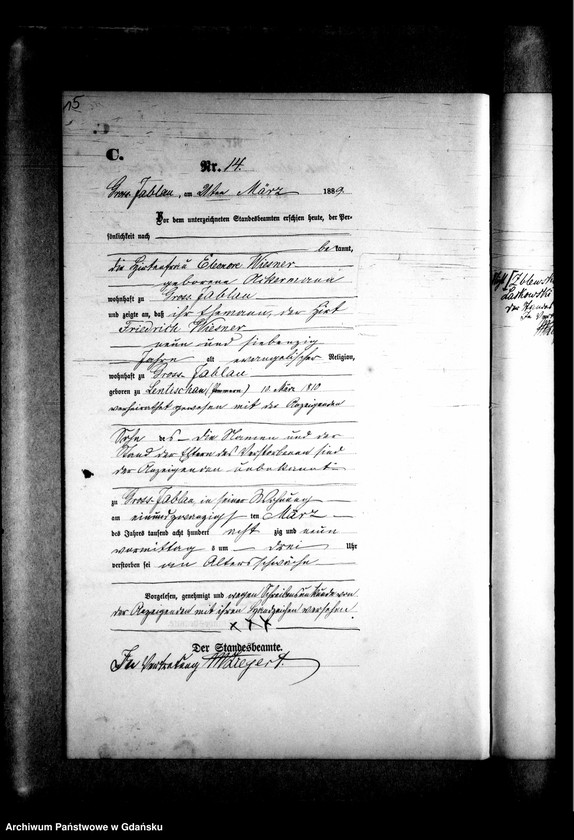 15
C.
Nr. 14.
Gross Jablau, am 21ten März 1889
Vor dem unterzeichneten Standesbeamten erschien heute, der Per-
sönlichkeit nach
bekannt,
die Hirtenfrau Eleonore Wiesner
geborene Ackermann
wohnhaft zu Gross Jablau
und zeigte an, daß ihr Ehemann, der Hirt
Friedrich Wiesner
neun und siebenzig
Jahre alt evangelischer Religion,
wohnhaft zu Gross Jablau
geboren zu (Pommern) 10 März 1810
verheirathet gewesen mit der Anzeigenden
Sohn des – Die Namen und der
Stand der Eltern des Verstorbenen sind
der Anzeigenden unbekannt
zu Gross Jablau in seiner Wohnung
am einundzwanzigsten März
des Jahres tausend acht hundert achtzig und neun
vormittag s um drei Uhr
verstorben sei an Altersschwäche
Vorgelesen, genehmigt und wegen Schreibensunkunde von
der Anzeigenden mit ihren Handzeichen versehen.
xxx
Der Standesbeamte.
In Vertretung
Jablewski
Laskowski
der Standes
In Ver
Archiwum Państwowe w Gdańsku